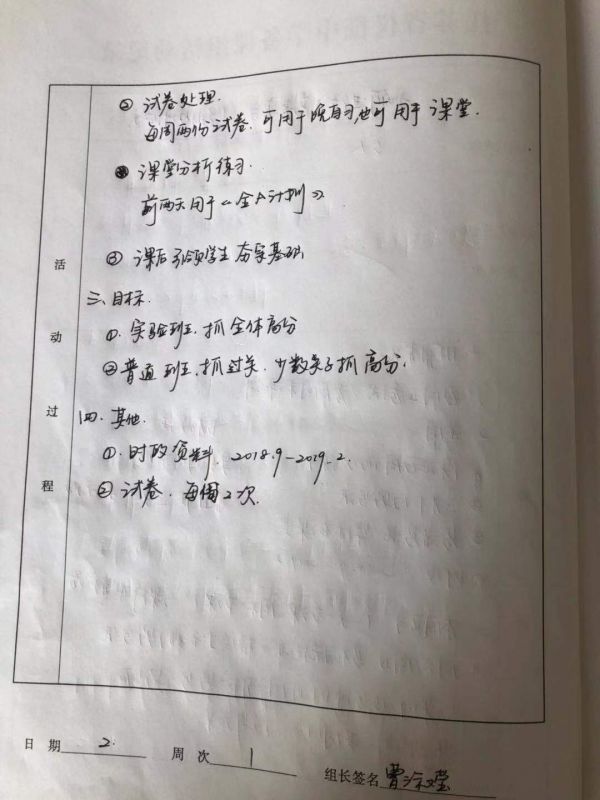 ② 试卷处理.
每周两份试卷. 可用于晚自习,也可用于课堂.
课堂分析练习.
前两天用《金A计划》
③ 课后引领学生夯实基础
三、目标.
①. 实验班. 抓全体高分
②普通班. 抓过关. 少数尖子抓高分.
四. 其他.
①. 时政资料. 2018.9-2019.2.
② 试卷. 每周2次.
活动过程
日 期 2. 周 次 1
组长签名 曹